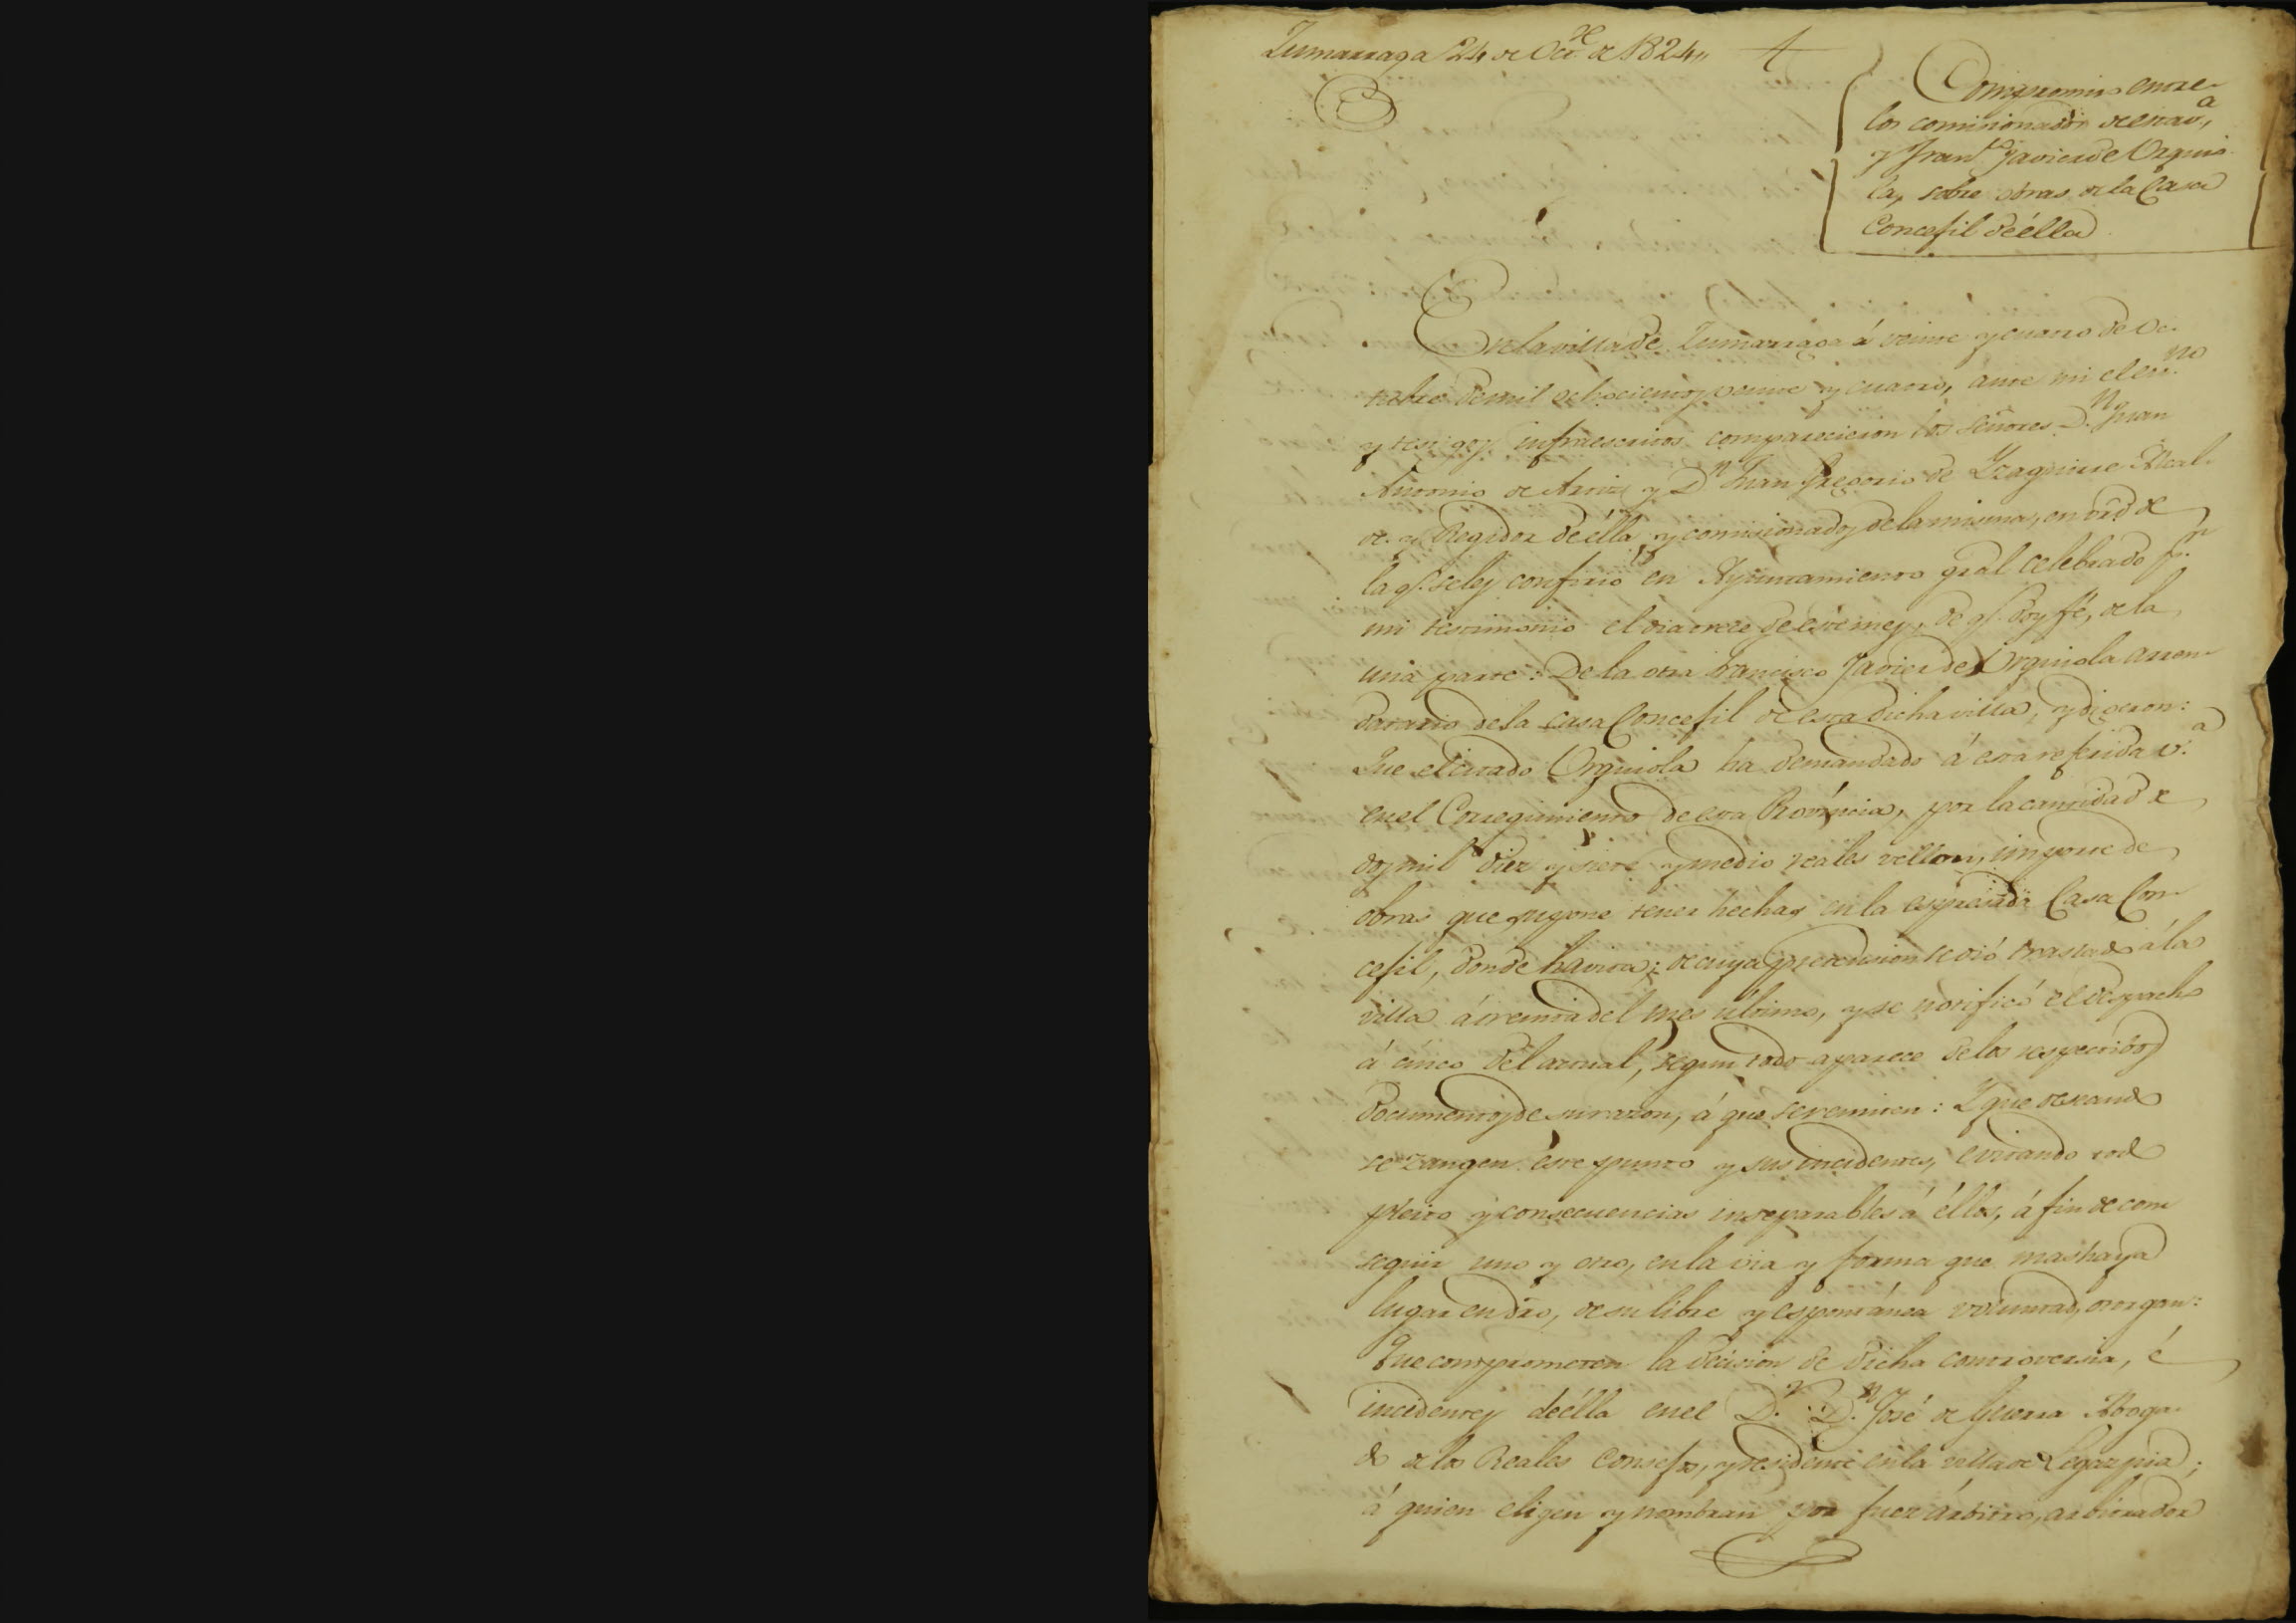 Zumarraga 24 de Oct.re de 1824,,
Compromiso entre
los comisionados de esta v.a,
y Fran.co Javier de Urquio
la, sobre obras de la Casa
Concejil de élla
En la villa de Zumarraga á veinte y cuatro de Oc-
tubre de mil ochocientos veinte y cuatro, ante mi el es.no
y testigos infraescritos comparecieron los señores D.n Juan
Antonio de Arriz y D.n Juan Gregorio de Yzaguirre Alcal-
de y Regidor de élla, y comisionados de la misma, en vrd de
la q.e se les confirió en Ayuntamiento gral celebrado p.r
mi testimonio el dia trece de este mes, de q.e doy fé, de la
una parte: De la otra Francisco Javier de Urquiola arren-
datario de la Casa Concejil de esta dicha villa, y digeron:
Que el citado Urquiola ha demandado á esta referida v.a
en el Corregimiento de esta Provincia, por la cantidad de
dos mil diez y siete y medio reales vellon, importe de
obras que supone tener hechas en la espresada Casa Con-
cejil, donde havita; de cuya pretension se dió traslado á la
villa á treinta del mes último, y se notificó el despacho
á cinco del actual, segun todo aparece de los respectivos
documentos de su razon, á que se remiten: Y que deseando
se zangen este punto y sus incidentes, evitando todo
pleito y consecuencias inseparables á éllos, á fin de con
seguir uno y otro, en la via y forma que mas haya
lugar en dro, de su libre y espontánea voluntad, otorgan:
Que comprometen la decision de dicha controversia, é
incidentes de élla en el D.r D.n José de Guerra Aboga-
do de los Reales Consejos, y residente en la villa de Legazpia;
á quien eligen y nombran por juez árbitro, arbitrador